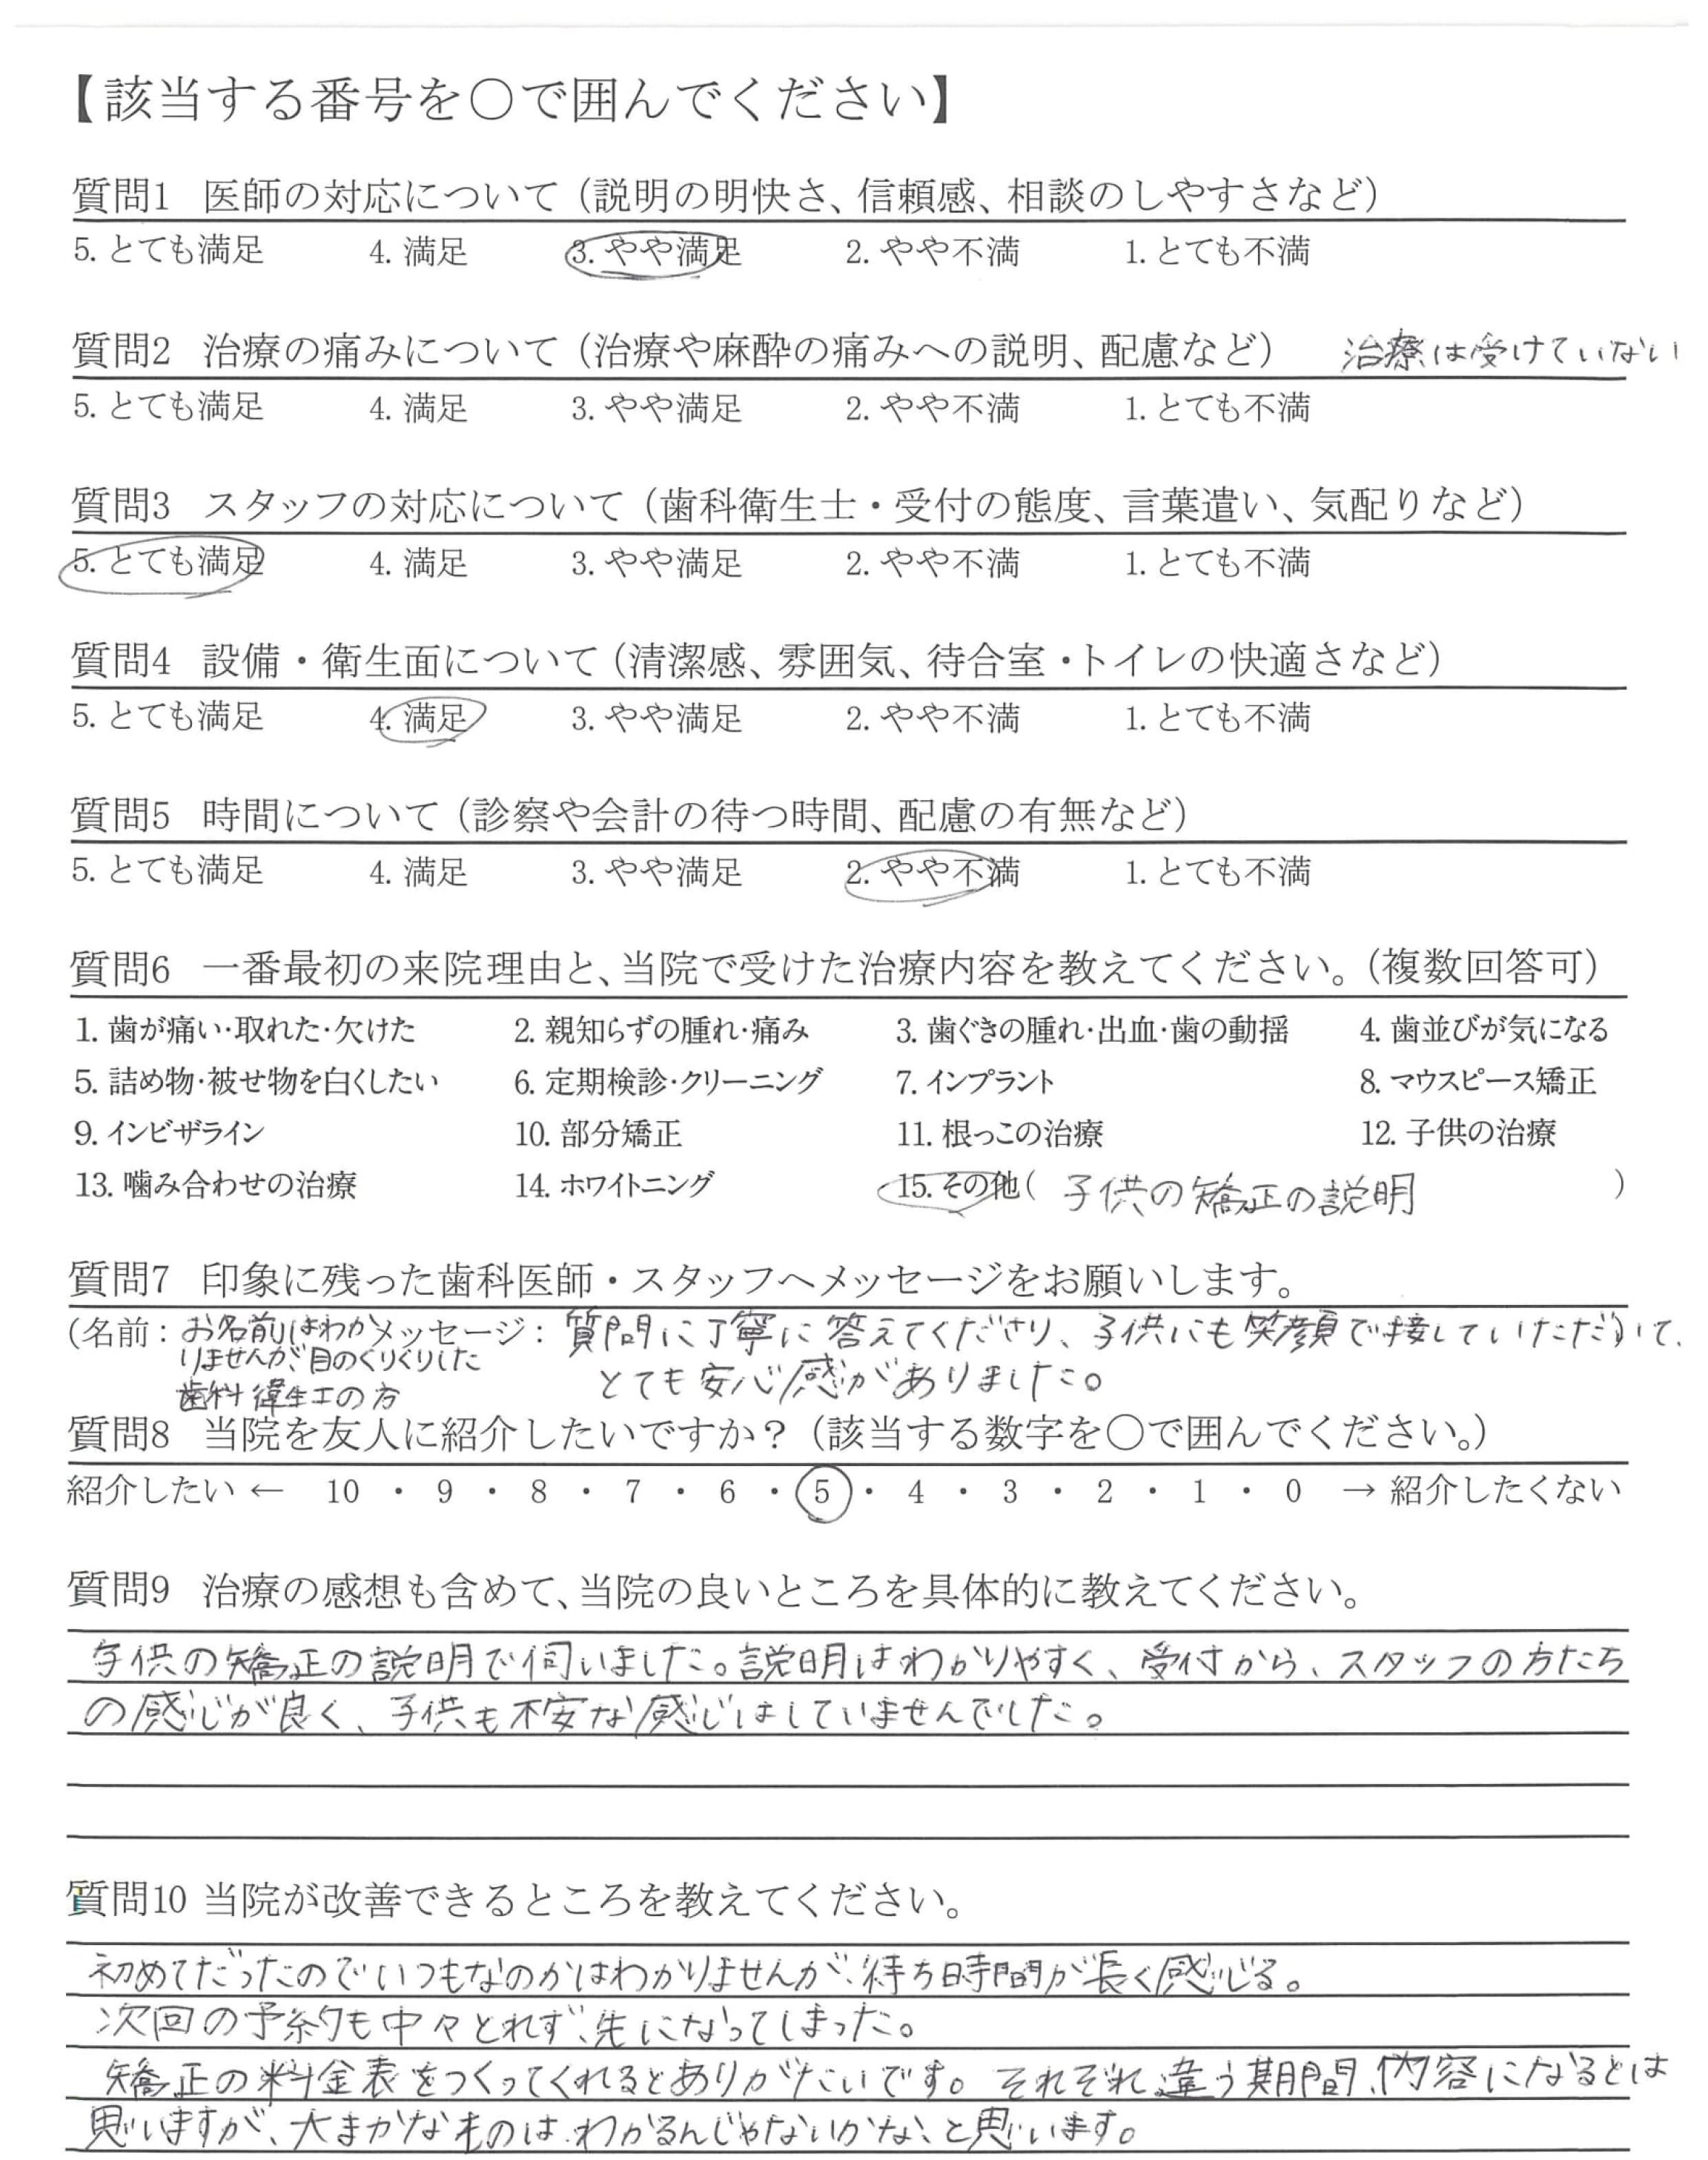 【該当する番号を〇で囲んでください】
質問1 医師の対応について（説明の明快さ、信頼感、相談のしやすさなど）
5. とても満足 4. 満足 3. やや満足 2. やや不満 1. とても不満
質問2 治療の痛みについて（治療や麻酔の痛みへの説明、配慮など） 治療は受けていない
5. とても満足 4. 満足 3. やや満足 2. やや不満 1. とても不満
質問3 スタッフの対応について（歯科衛生士・受付の態度、言葉遣い、気配りなど）
5. とても満足 4. 満足 3. やや満足 2. やや不満 1. とても不満
質問4 設備・衛生面について（清潔感、雰囲気、待合室・トイレの快適さなど）
5. とても満足 4. 満足 3. やや満足 2. やや不満 1. とても不満
質問5 時間について（診察や会計の待つ時間、配慮の有無など）
5. とても満足 4. 満足 3. やや満足 2. やや不満 1. とても不満
質問6 一番最初の来院理由と、当院で受けた治療内容を教えてください。（複数回答可）
1. 歯が痛い・取れた・欠けた 2. 親知らずの腫れ・痛み 3. 歯ぐきの腫れ・出血・歯の動揺 4. 歯並びが気になる
5. 詰め物・被せ物を白くしたい 6. 定期検診・クリーニング 7. インプラント 8. マウスピース矯正
9. インビザライン 10. 部分矯正 11. 根っこの治療 12. 子供の治療
13. 噛み合わせの治療 14. ホワイトニング 15. その他（ 子供の矯正の説明 ）
質問7 印象に残った歯科医師・スタッフへメッセージをお願いします。
（名前：お名前はわか メッセージ：質問に丁寧に答えてくださり、子供にも笑顔で接していただいて、
りませんが、目のくりくりした とても安心感がありました。
歯科衛生士の方
質問8 当院を友人に紹介したいですか？（該当する数字を〇で囲んでください。）
紹介したい ← 10 ・ 9 ・ 8 ・ 7 ・ 6 ・ 5 ・ 4 ・ 3 ・ 2 ・ 1 ・ 0 → 紹介したくない
質問9 治療の感想も含めて、当院の良いところを具体的に教えてください。
子供の矯正の説明で伺いました。説明はわかりやすく、受付から、スタッフの方たち
の感じが良く、子供も不安な感じはしていませんでした。
質問10 当院が改善できるところを教えてください。
初めてだったのでいつもなのかはわかりませんが、待ち時間が長く感じる。
次回の予約も中々とれず、先になってしまった。
矯正の料金表をつくってくれるとありがたいです。それぞれ違う期間、内容になるとは
思いますが、大まかなものはわかるんじゃないかな、と思います。